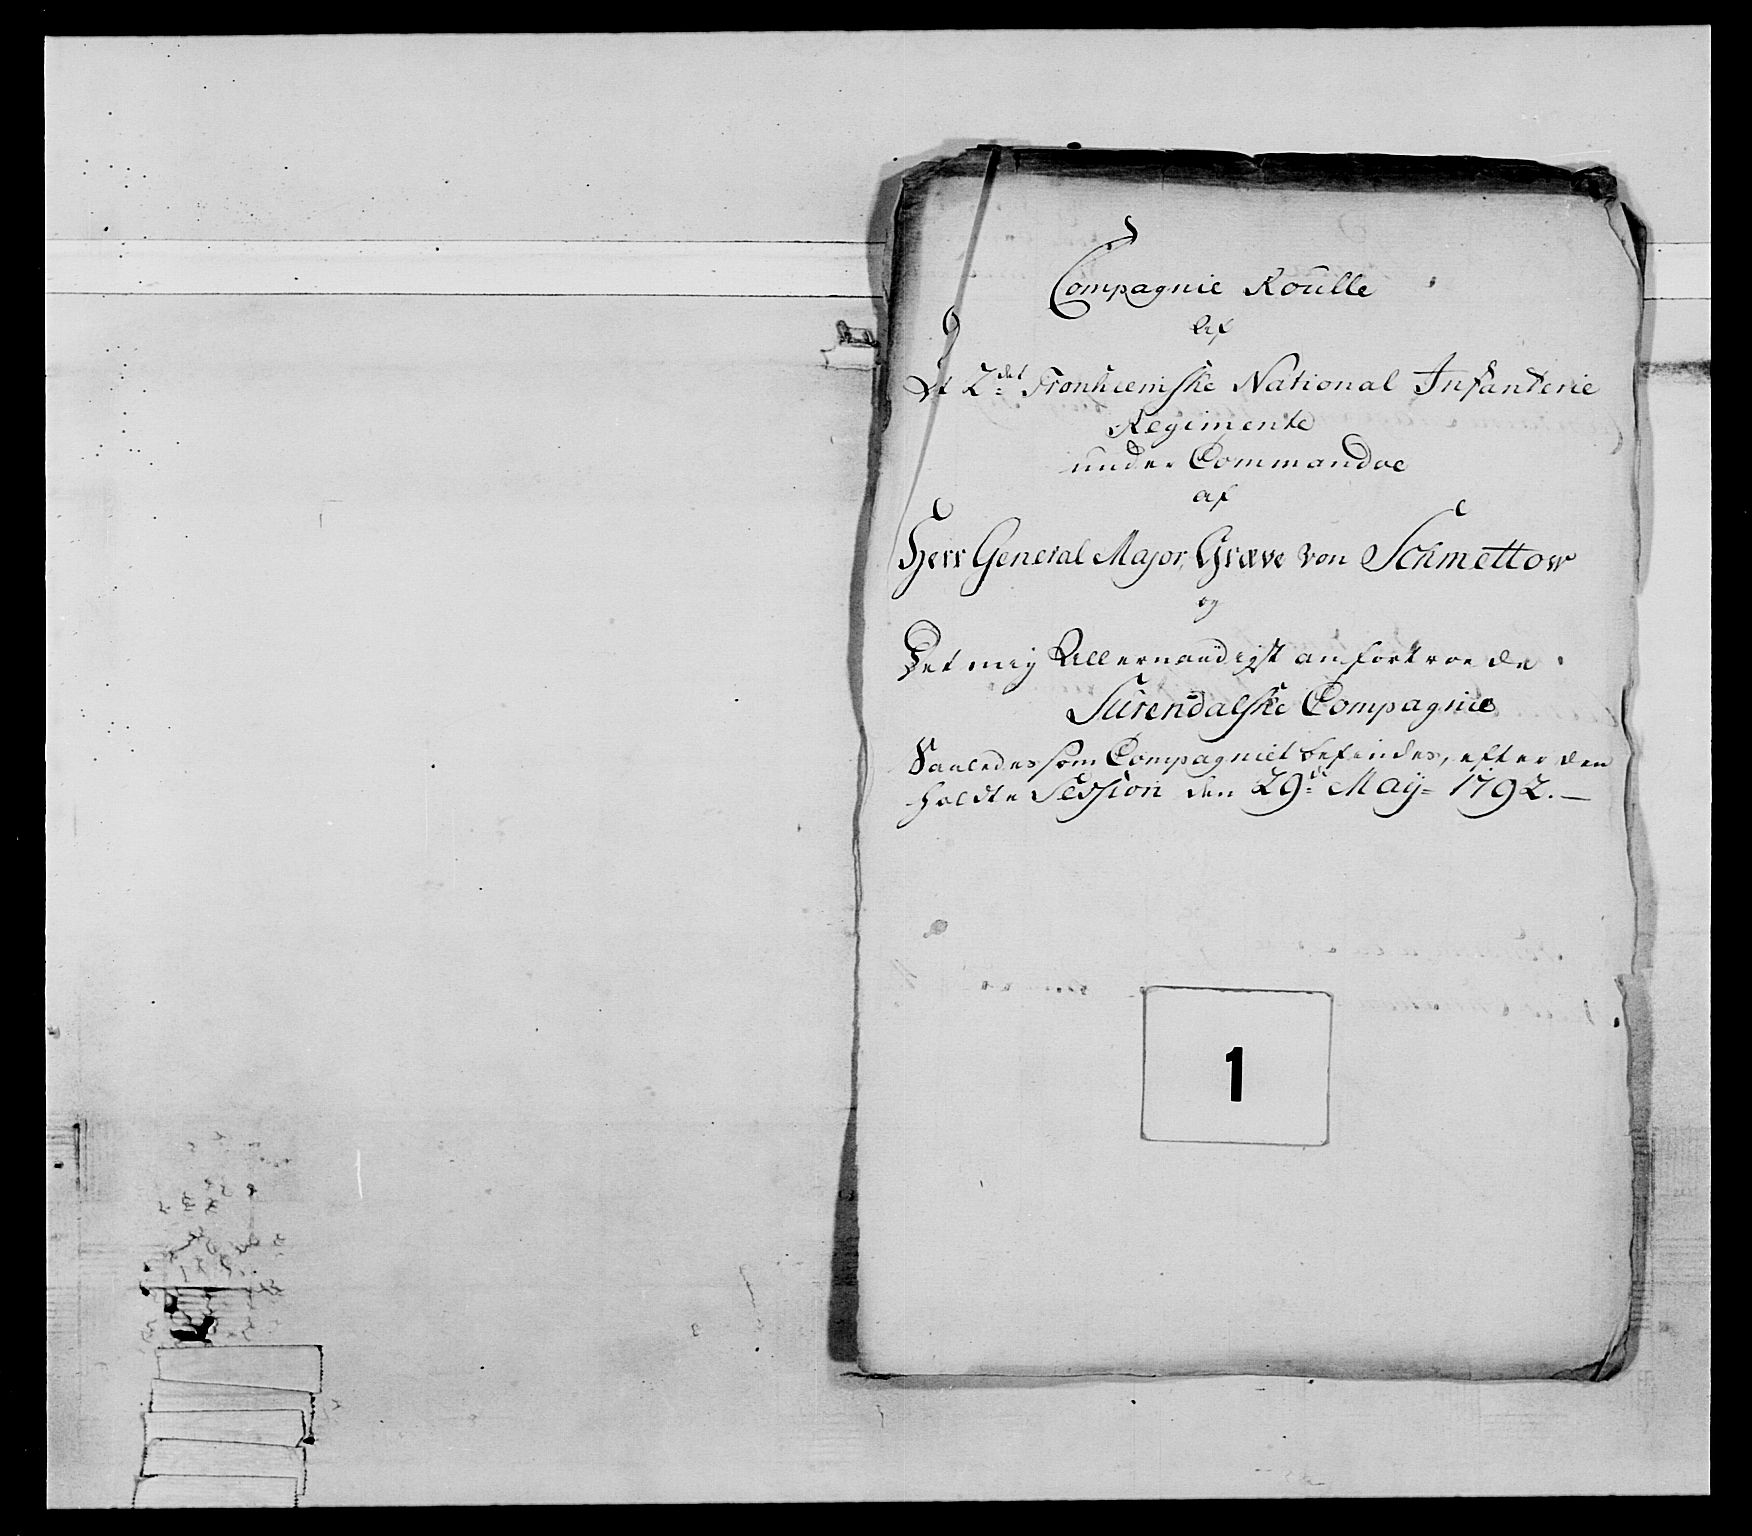 Compagnie Roulle
Af
Det 2det Tronhiemske National Infanterie
Regimente
under Commandoe
af
Herr General Major, Græve von Schmettow
og
Det mig Allernaadigst anfortroede
Surendalske Compagnie
Saaledes som Compagniet befindes, efter den
holdte Session den 29de May 1792.
1